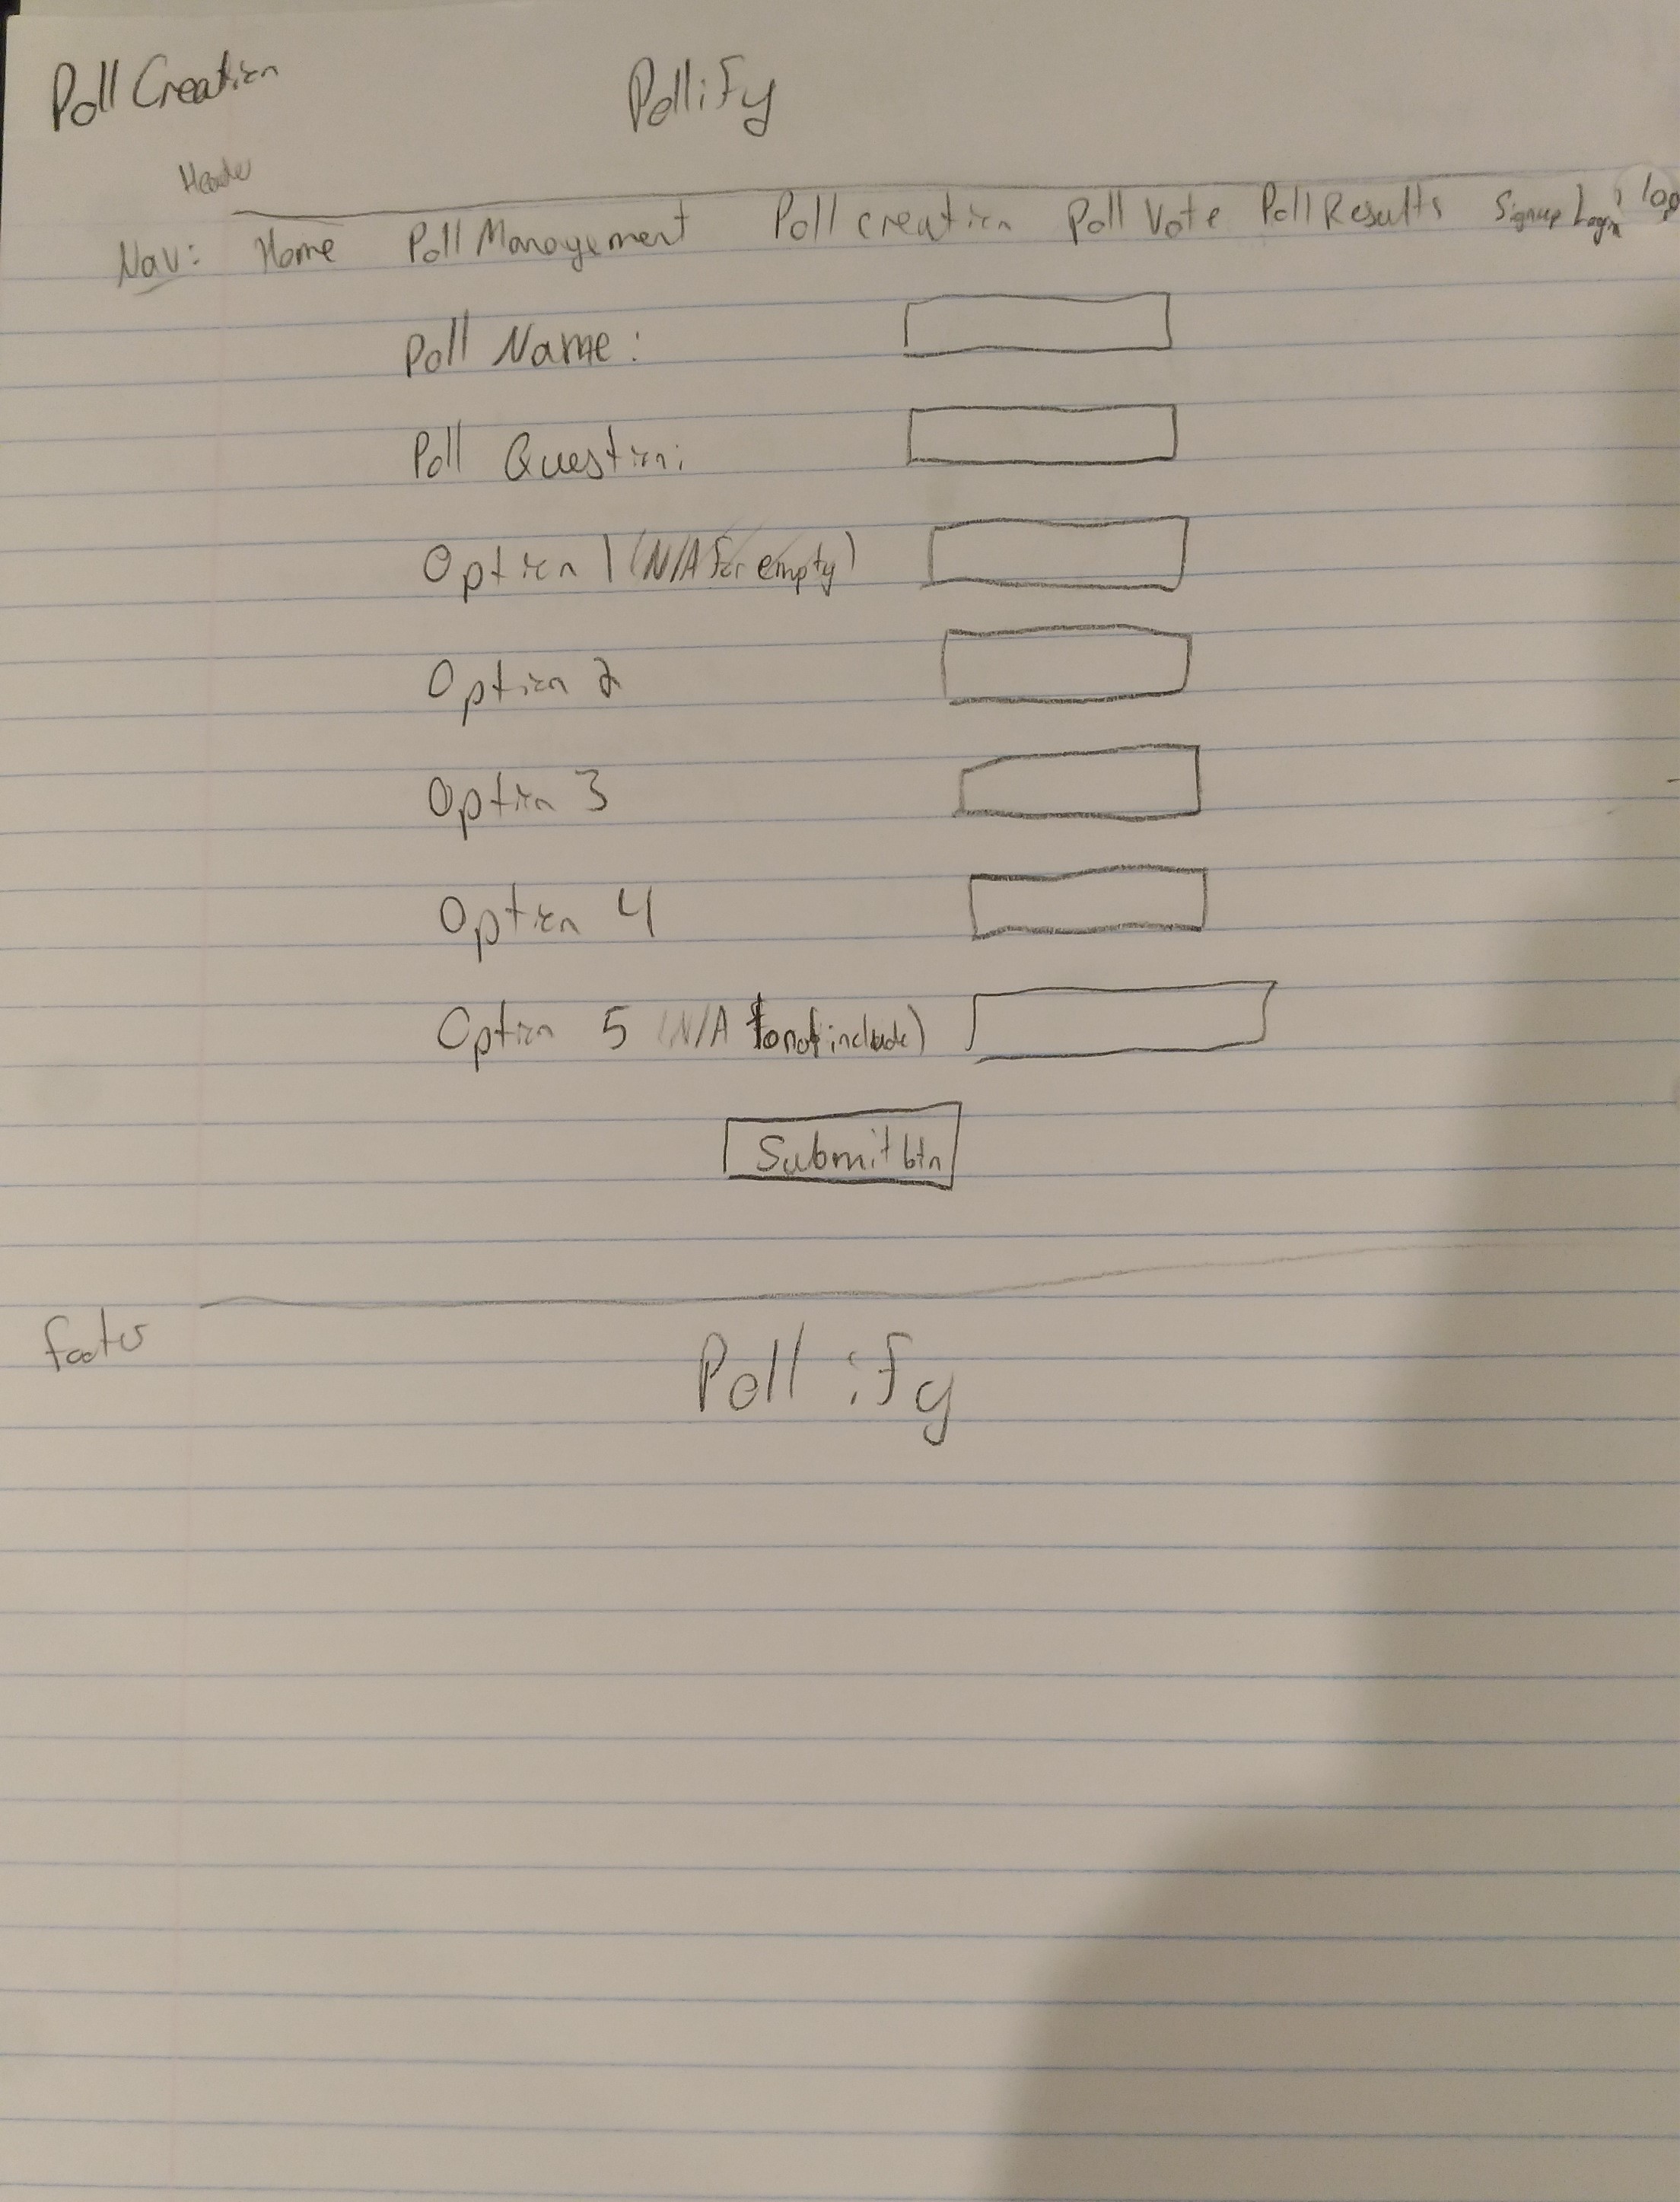 Poll Creation
Pollify
Header
Nav: Home Poll Management Poll creation Poll Vote Poll Results Signup Login
Poll Name:
Poll Question:
Option 1 (N/A for empty)
Option 2
Option 3
Option 4
Option 5 (N/A to not include)
Submit btn
footer
Pollify